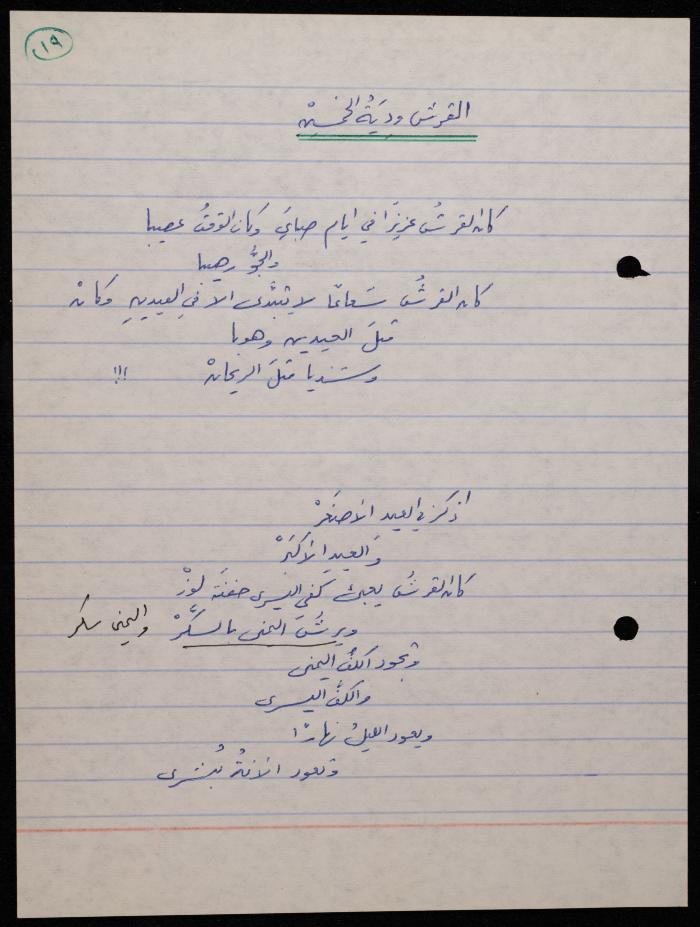 ١١٩
القرش وديَةُ الخمسينْ
كان القرشُ عزيزًا في ايام صبايَ وكان الوقتُ عصيبا
والجوُّ رهيبا
كان القرشُ شعاعًا لا يتبدَّى الا في العيدينِ وكانْ
مثلَ العيدين وهوبا
وشنديا مثلَ الريحانْ !!!
اذكرُ في العيد الاصغَرْ
والعيدِ الاكبَرْ
كان القرشُ يعبئ كفي اليسرى حفنَةَ لوزْ
ويرشُّ اليمنى بالسكَّرْ واليمنى سكر
وتجود الكفُّ اليمنى
والكفُّ اليسرى
ويعود الليلُ نهارًا
وتعود الانَّةُ بُشرى